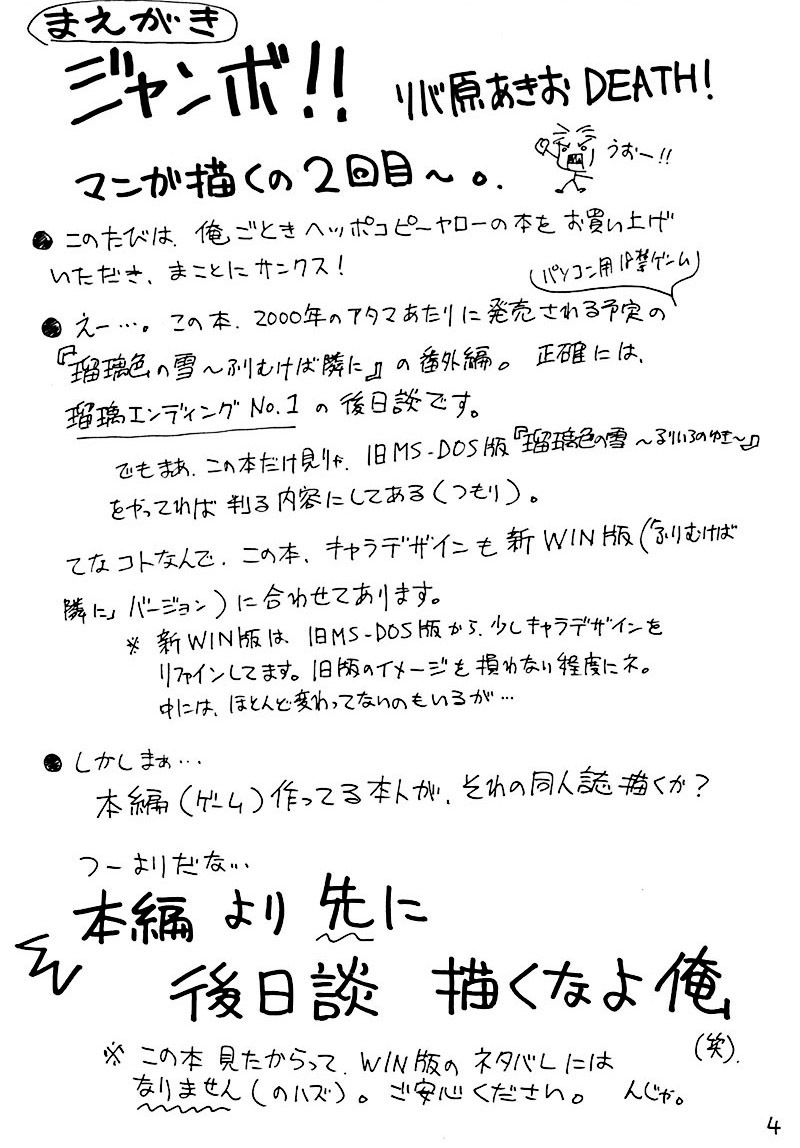 まえがき
ジャンボ!! リバ原あきお DEATH!
うおー!!
マンが描くの2回目～。
● このたびは、俺ごときヘッポコピーヤローの本をお買い上げ
いただき、まことにサンクス!
(パソコン用18禁ゲーム)
● えー…。この本、2000年のアタマあたりに発売される予定の
『瑠璃色の雪～ふりむけば隣に』の番外編。正確には、
瑠璃エンディングNo.1の後日談です。
でもまあ、この本だけ見りゃ、旧MS-DOS版『瑠璃色の雪～るりいろのゆき～』
をやってれば判る内容にしてある(つもり)。
てなコトなんで、この本、キャラデザインも新WIN版(「ふりむけば
隣に」バージョン)に合わせてあります。
※ 新WIN版は、旧MS-DOS版から、少しキャラデザインを
リファインしてます。旧版のイメージを損わない程度にネ。
中には、ほとんど変わってないのもいるが…
● しかしまぁ…
本編(ゲーム)作ってる本人が、それの同人誌描くか?
つーよりだな…
本編より先に
後日談 描くなよ俺
(笑).
※ この本見たからって、WIN版のネタバレには
なりません(のハズ)。ご安心ください。 んじゃ。
4